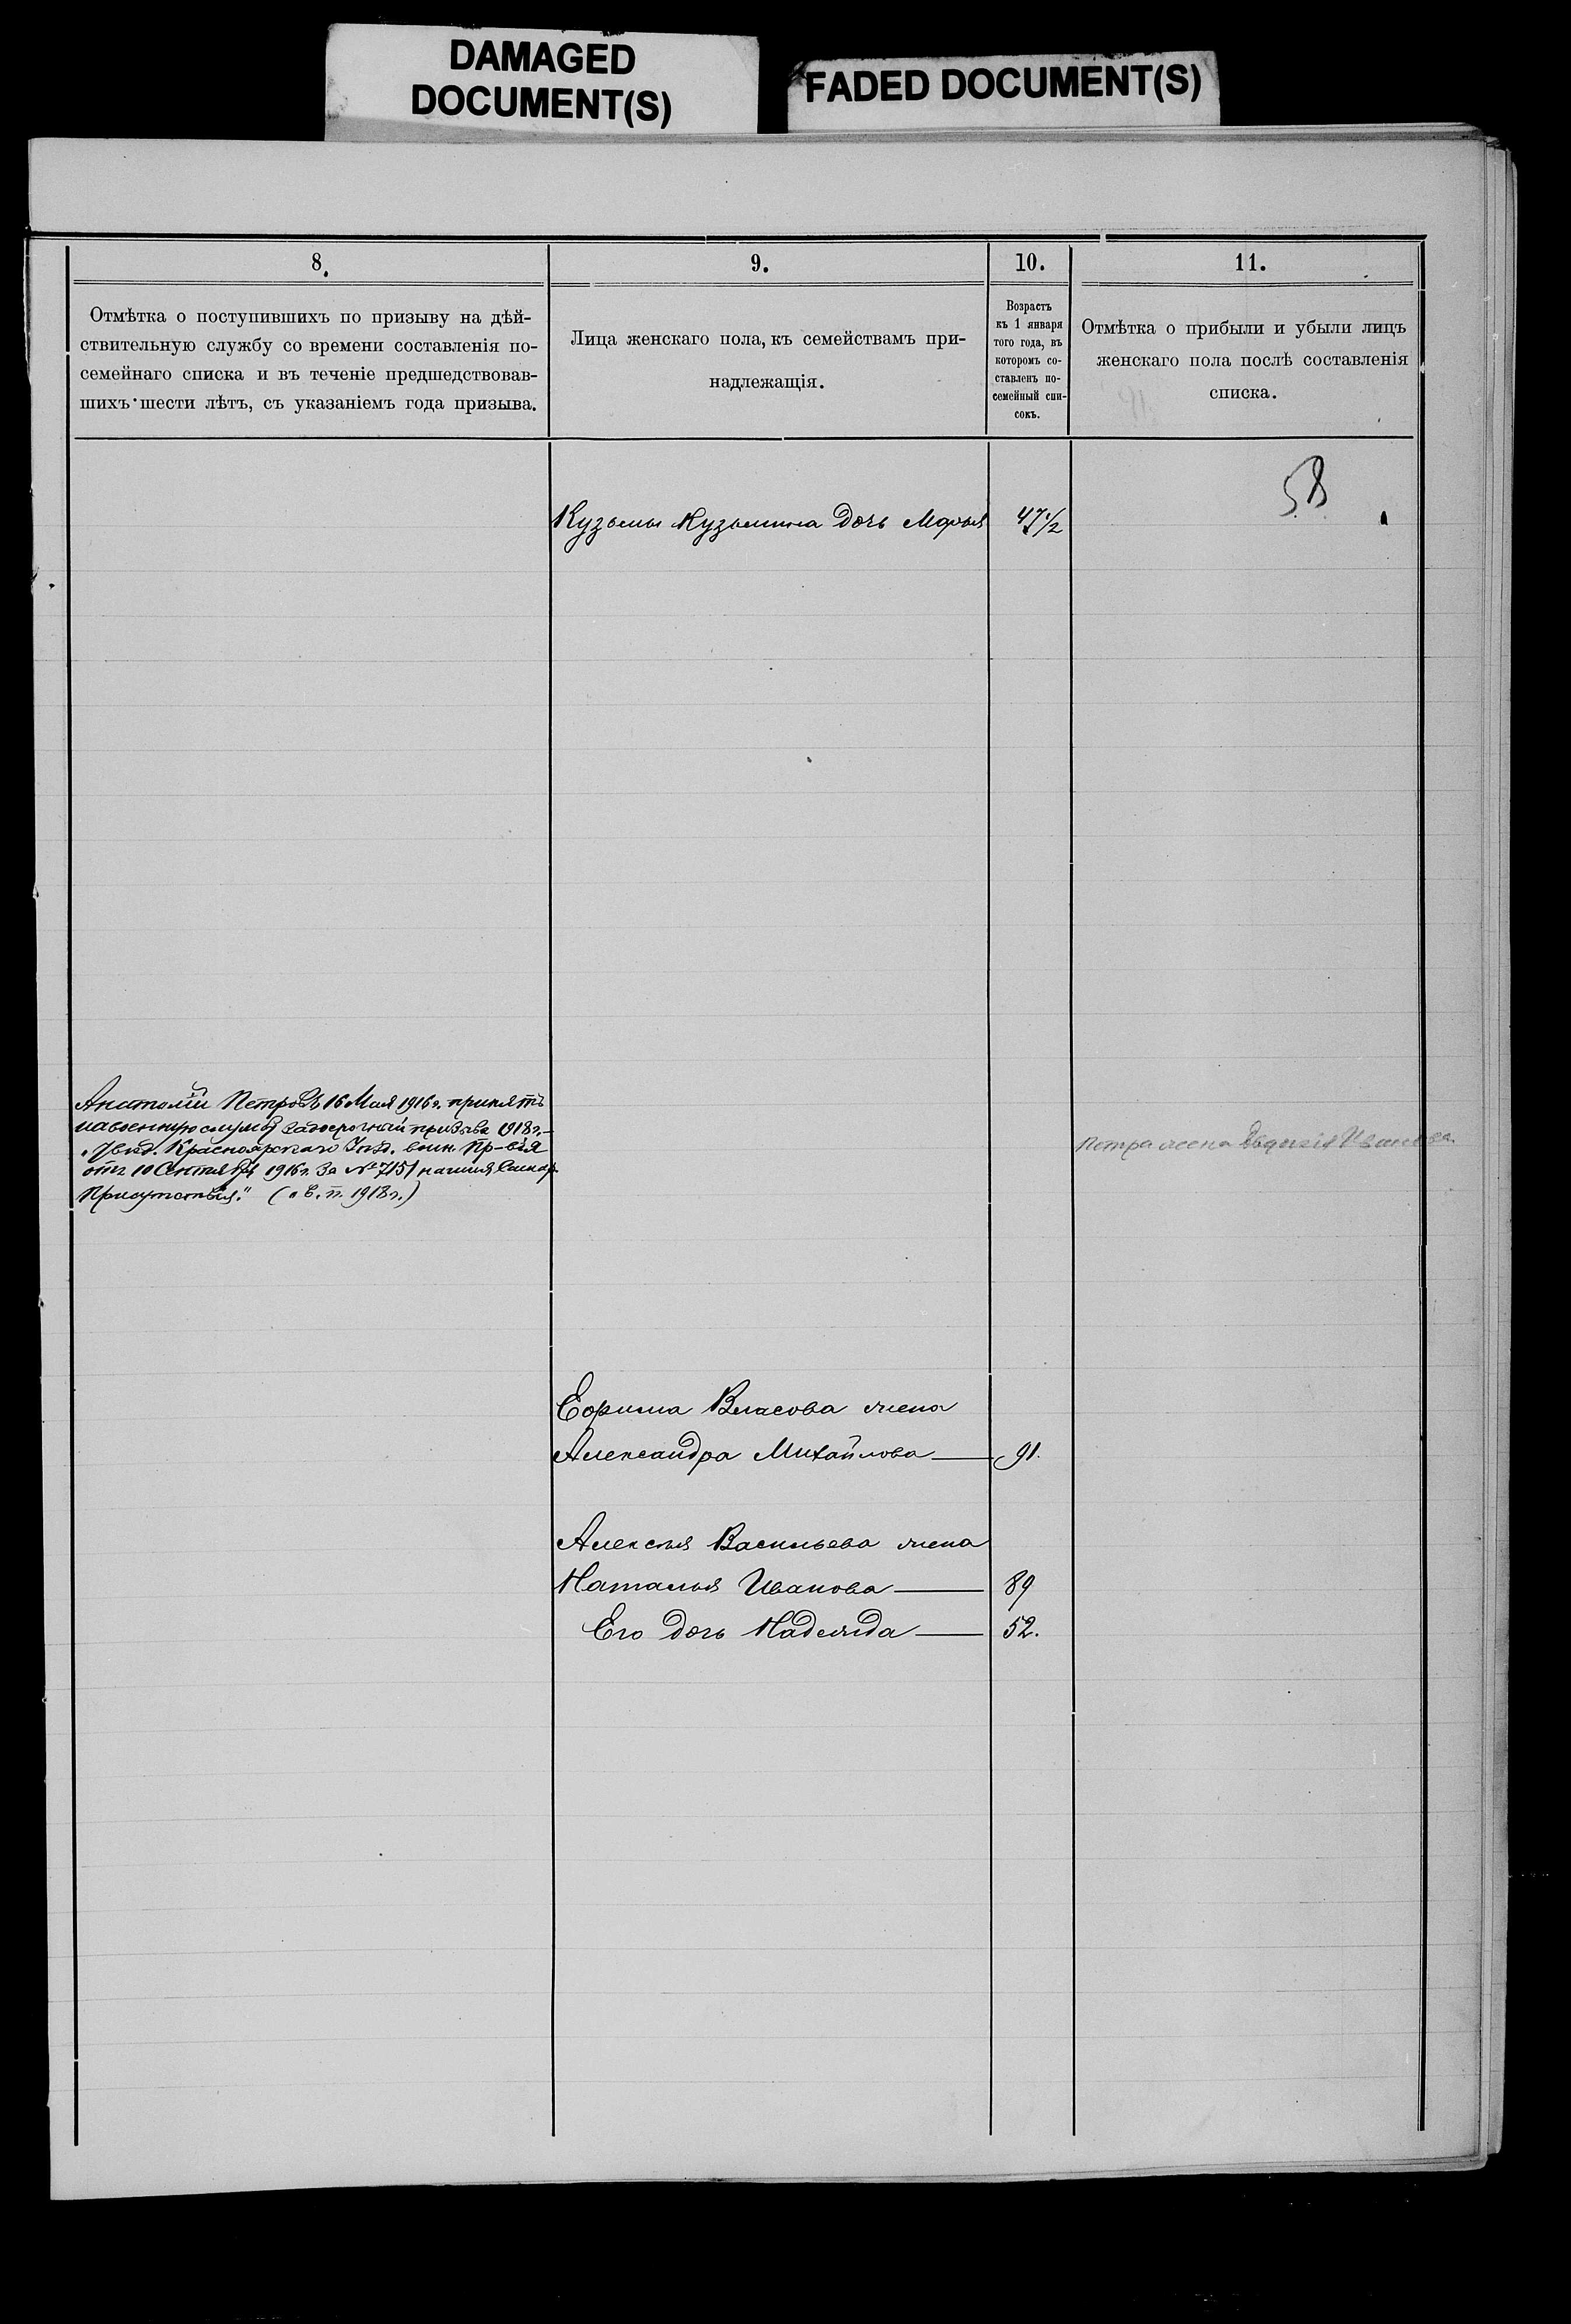 DAMAGED
DOCUMENT(S)
FADED DOCUMENT(S)
8.
9.
10.
11.
Отмѣтка о поступившихъ по призыву на дѣй-
ствительную службу со времени составленія по-
семейнаго списка и въ теченіе предшедствовав-
шихъ шести лѣтъ, съ указаніемъ года призыва.
Лица женскаго пола, къ семействамъ при-
надлежащія.
Возрастъ
къ 1 января
того года, въ
которомъ со-
ставленъ по-
семейный спи-
сокъ.
Отмѣтка о прибыли и убыли лицъ
женскаго пола послѣ составленія
списка.
58
Кузьмы Кузьмина дочь Марья 47 1/2
Анатолій Петровъ 16 Мая 1916 г. принятъ
на военную службу досрочный призыва 1918 г.
Увѣд. Красноярскаго Уѣзд. воин. Пр-вія
отъ 10 Сентября 1916 г. За № 7151
Присутствія." (о в. п. 1918 г.)
Петра жена Ивановa
Ефрима Власова жена
Александра Михайлова — 91.
Алексѣя Васильева жена
Наталья Иванова — 89
Его дочь Надежда — 52.